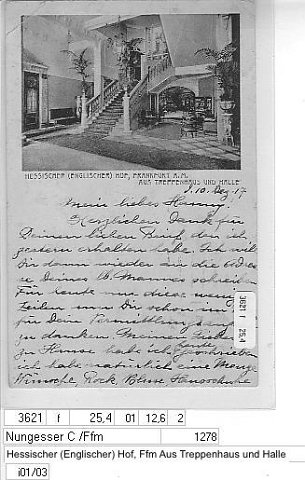 HESSISCHER (ENGLISCHER) HOF, FRANKFURT A.M.
AUS TREPPENHAUS UND HALLE
d. 10. Dez. 17
Mein liebes
Herzlichen Dank für
Deinen lieben Brief, den ich
gestern erhalten habe. Ich will
Dir dann wieder
Deines Mannes schreiben
Für heute nur diese wenig
Zeilen um Dir schon im
für Deine Vermittlung
zu danken. Meinen
zu Hause habe ich geschrieben
ich habe natürlich eine Menge
Wünsche, Rock, Bluse, Handschuhe
3621 f
25,4
3621 f 25,4 01 12,6 2
Nungesser C /Ffm 1278
Hessischer (Englischer) Hof, Ffm Aus Treppenhaus und Halle
i01/03